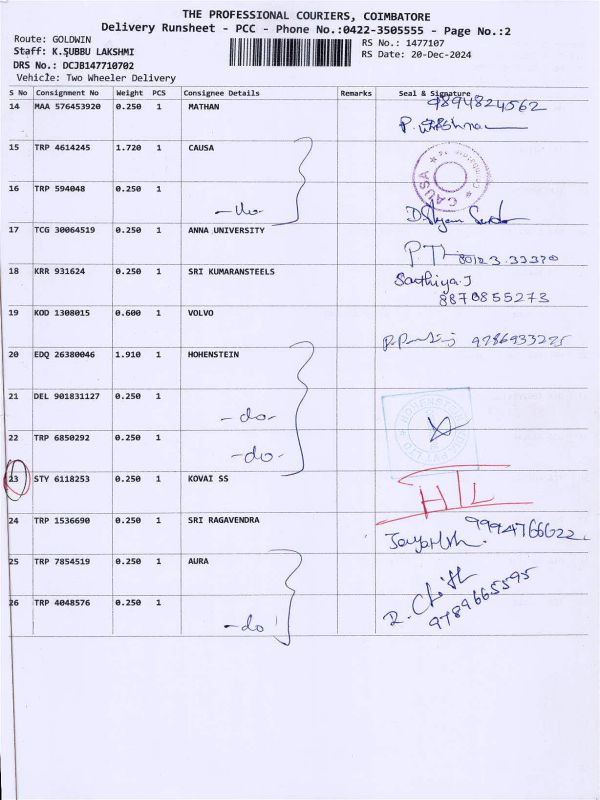 THE PROFESSIONAL COURIERS, COIMBATORE
Delivery Runsheet - PCC - Phone No.:0422-3505555 - Page No.:2
Route: GOLDWIN
RS No.: 1477107
Staff: K.SUBBU LAKSHMI
RS Date: 20-Dec-2024
DRS No.: DCJB147710702
Vehicle: Two Wheeler Delivery
S No Consignment No Weight PCS Consignee Details Remarks Seal & Signature
14 MAA 576453920 0.250 1 MATHAN 9894824562
P.
15 TRP 4614245 1.720 1 CAUSA CAUSA
16 TRP 594048 0.250 1
17 TCG 30064519 0.250 1 ANNA UNIVERSITY
18 KRR 931624 0.250 1 SRI KUMARANSTEELS Sathiya.J
8870855273
19 KOD 1308015 0.600 1 VOLVO 9786933225
20 EDQ 26380046 1.910 1 HOHENSTEIN
21 DEL 901831127 0.250 1 -do- HOHENSTEIN
22 TRP 6850292 0.250 1 -do-
23 STY 6118253 0.250 1 KOVAI SS HTL
24 TRP 1536690 0.250 1 SRI RAGAVENDRA 9994766622
25 TRP 7854519 0.250 1 AURA
26 TRP 4048576 0.250 1 -do- 9789665595